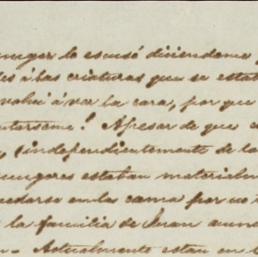 muger lo escusó diciendome
á las criaturas que se estab
volvi á ver la cara, por que
! Apesar de que
, (independientemente de la
mugeres estaban materialm
en la cama por no
la familia de Juan
Actualmente estan en